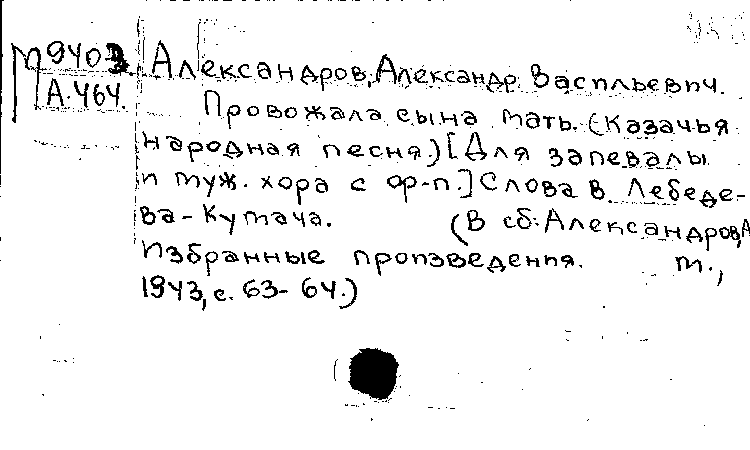 М 9403
А.464.
Александров, Александр Васильевич.
Провожала сына мать. (Казачья
народная песня.) [Для запевалы
и муж. хора с ф-п.] Слова В. Лебеде-
ва-Кумача. (В сб: Александров, А
Избранные произведения. М.,
1943, с. 63-64.)